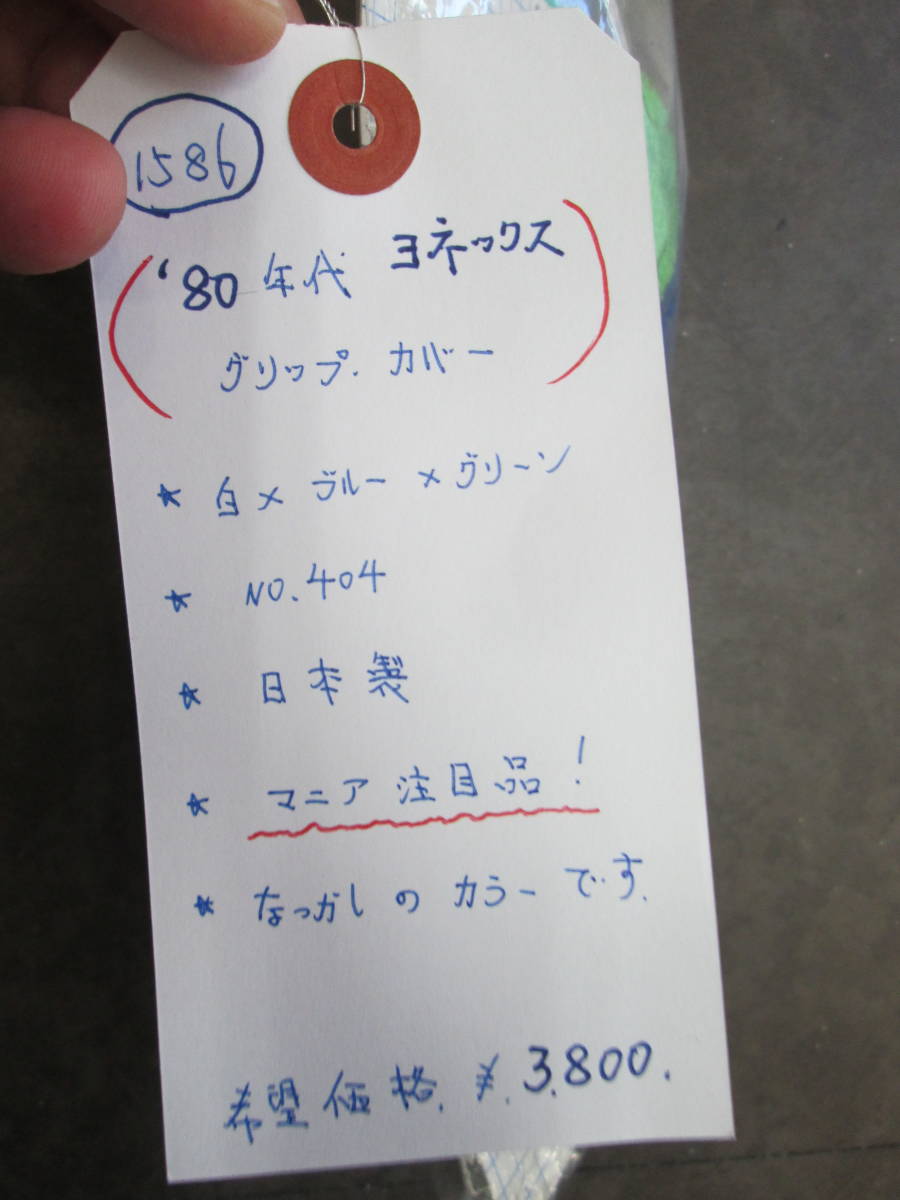 1586
'80年代 ヨネックス
グリップ.カバー
★ 白×ブルー×グリーン
★ NO.404
★ 日本製
★ マニア注目品!
★ なつかしのカラーです.
希望価格.¥.3.800.